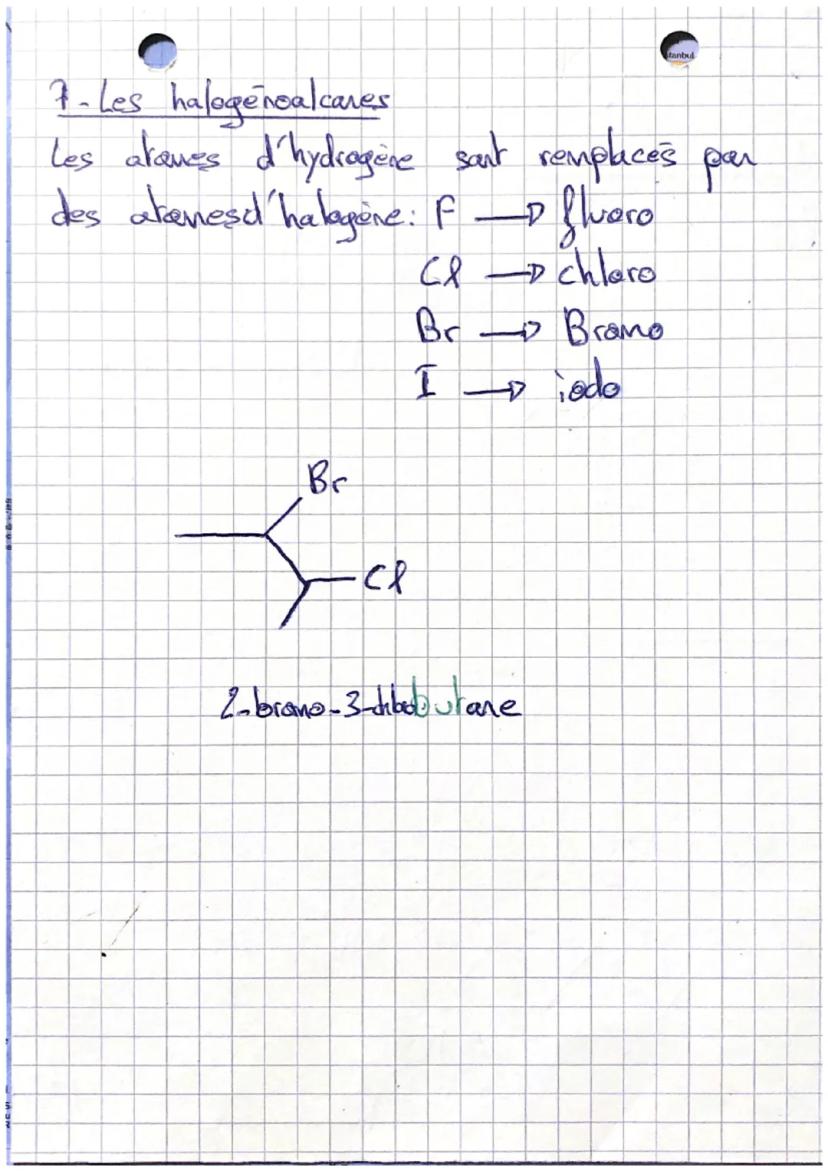 tanbul
7-Les halogénoalcanes
Les atomes d'hydrogène sont remplacés par
des atomes d'halogène: F → fluoro
Cl → chloro
Br → Bromo
I → iodo
Br
Cl
2-bromo-3-chlorobutane